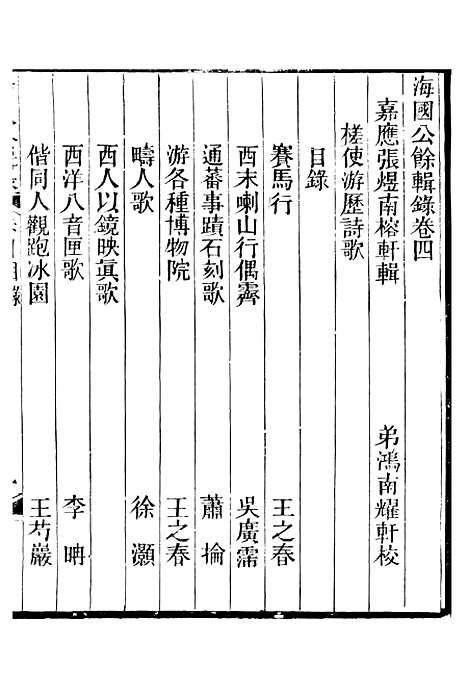 海國公餘輯錄卷四
嘉應張煜南榕軒輯 弟鴻南耀軒校
槎使游歷詩歌
目錄
賽馬行 王之春
西末喇山行偶霽 吳廣霈
通蕃事蹟石刻歌 蕭掄
游各種博物院 王之春
疇人歌 徐灝
西人以鏡映眞歌
西洋八音匣歌 李晭
偕同人觀跑冰園 王芍巖